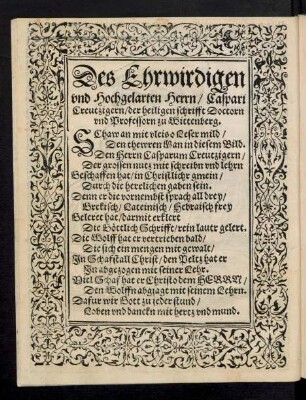 Des Ehrwirdigen
vnd Hochgelarten Herrn / Caspari
Creutzigern / der heiligen schrifft Doctorn
vnd Professorn zu Wittenberg.
Schaw an mit vleis o Leser mild /
Den thewren Man in diesem Bild.
Den Herrn Casparum Creutzigern /
Der grossen nutz mit schreibn vnd lehrn
Geschaffen hat / in Christlichr gmein /
Durch die herrlichen gaben sein.
Denn er die vornembst sprach all drey /
Grekisch / Lateinisch / Hebraisch frey
Geleret hat / darmit erklert
Die Göttlich Schrifft / rein lautr gelert.
Die Wolff hat er vertrieben bald /
Die sich einmengen mit gewalt /
In Schafstall Christ / den Peltz hat er
In abgezogen mit seiner Lehr.
Viel Schaf hat er Christo dem HERRN /
Den Wolffn abgiagt mit seinem Lehrn.
Dafür wir Gott zu jeder stund /
Loben vnd dancken mit hertz vnd mund.